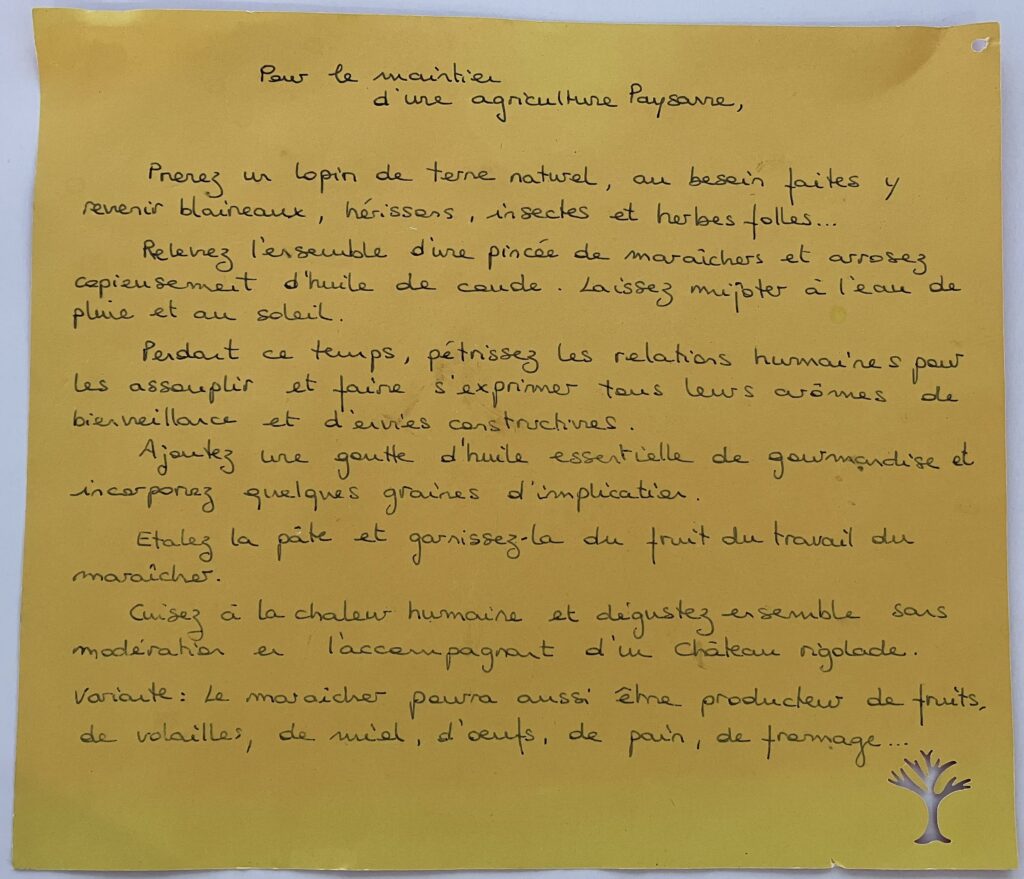 Pour le maintien
d'une agriculture Paysanne,
Prenez un lopin de terre naturel, au besoin faites y
revenir blaireaux, hérissons, insectes et herbes folles...
Relevez l'ensemble d'une pincée de maraîchers et arrosez
copieusement d'huile de coude. Laissez mijoter à l'eau de
pluie et au soleil.
Pendant ce temps, pétrissez les relations humaines pour
les assouplir et faire s'exprimer tous leurs arômes de
bienveillance et d'envies constructives.
Ajoutez une goutte d'huile essentielle de gourmandise et
incorporez quelques graines d'implication.
Etalez la pâte et garnissez-la du fruit du travail du
maraîcher.
Cuisez à la chaleur humaine et dégustez ensemble sans
modération en l'accompagnant d'un Château rigolade.
Variante : Le maraicher pourra aussi être producteur de fruits,
de volailles, de miel, d'oeufs, de pain, de fromage...